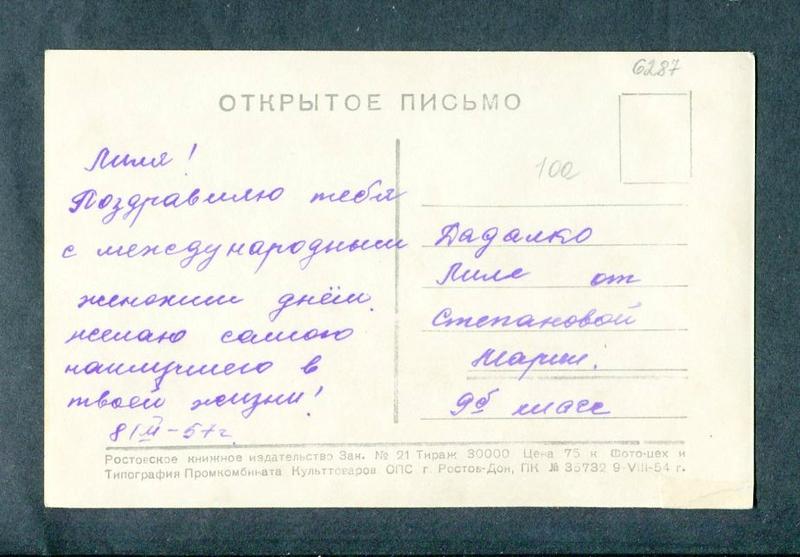 6287
ОТКРЫТОЕ ПИСЬМО
100
Лиля!
Поздравляю тебя
с международным
женским днём.
желаю самого
наилучшего в
твоей жизни!
8/III-57 г.
Дадалко
Лиле от
Степановой
Марии.
9б класс
Ростовское книжное издательство Зак. № 21 Тираж 30000 Цена 75 к Фото-цех и
Типография Промкомбината Культтоваров ОПС г. Ростов-Дон, ПК № 35732 9-VIII-54 г.